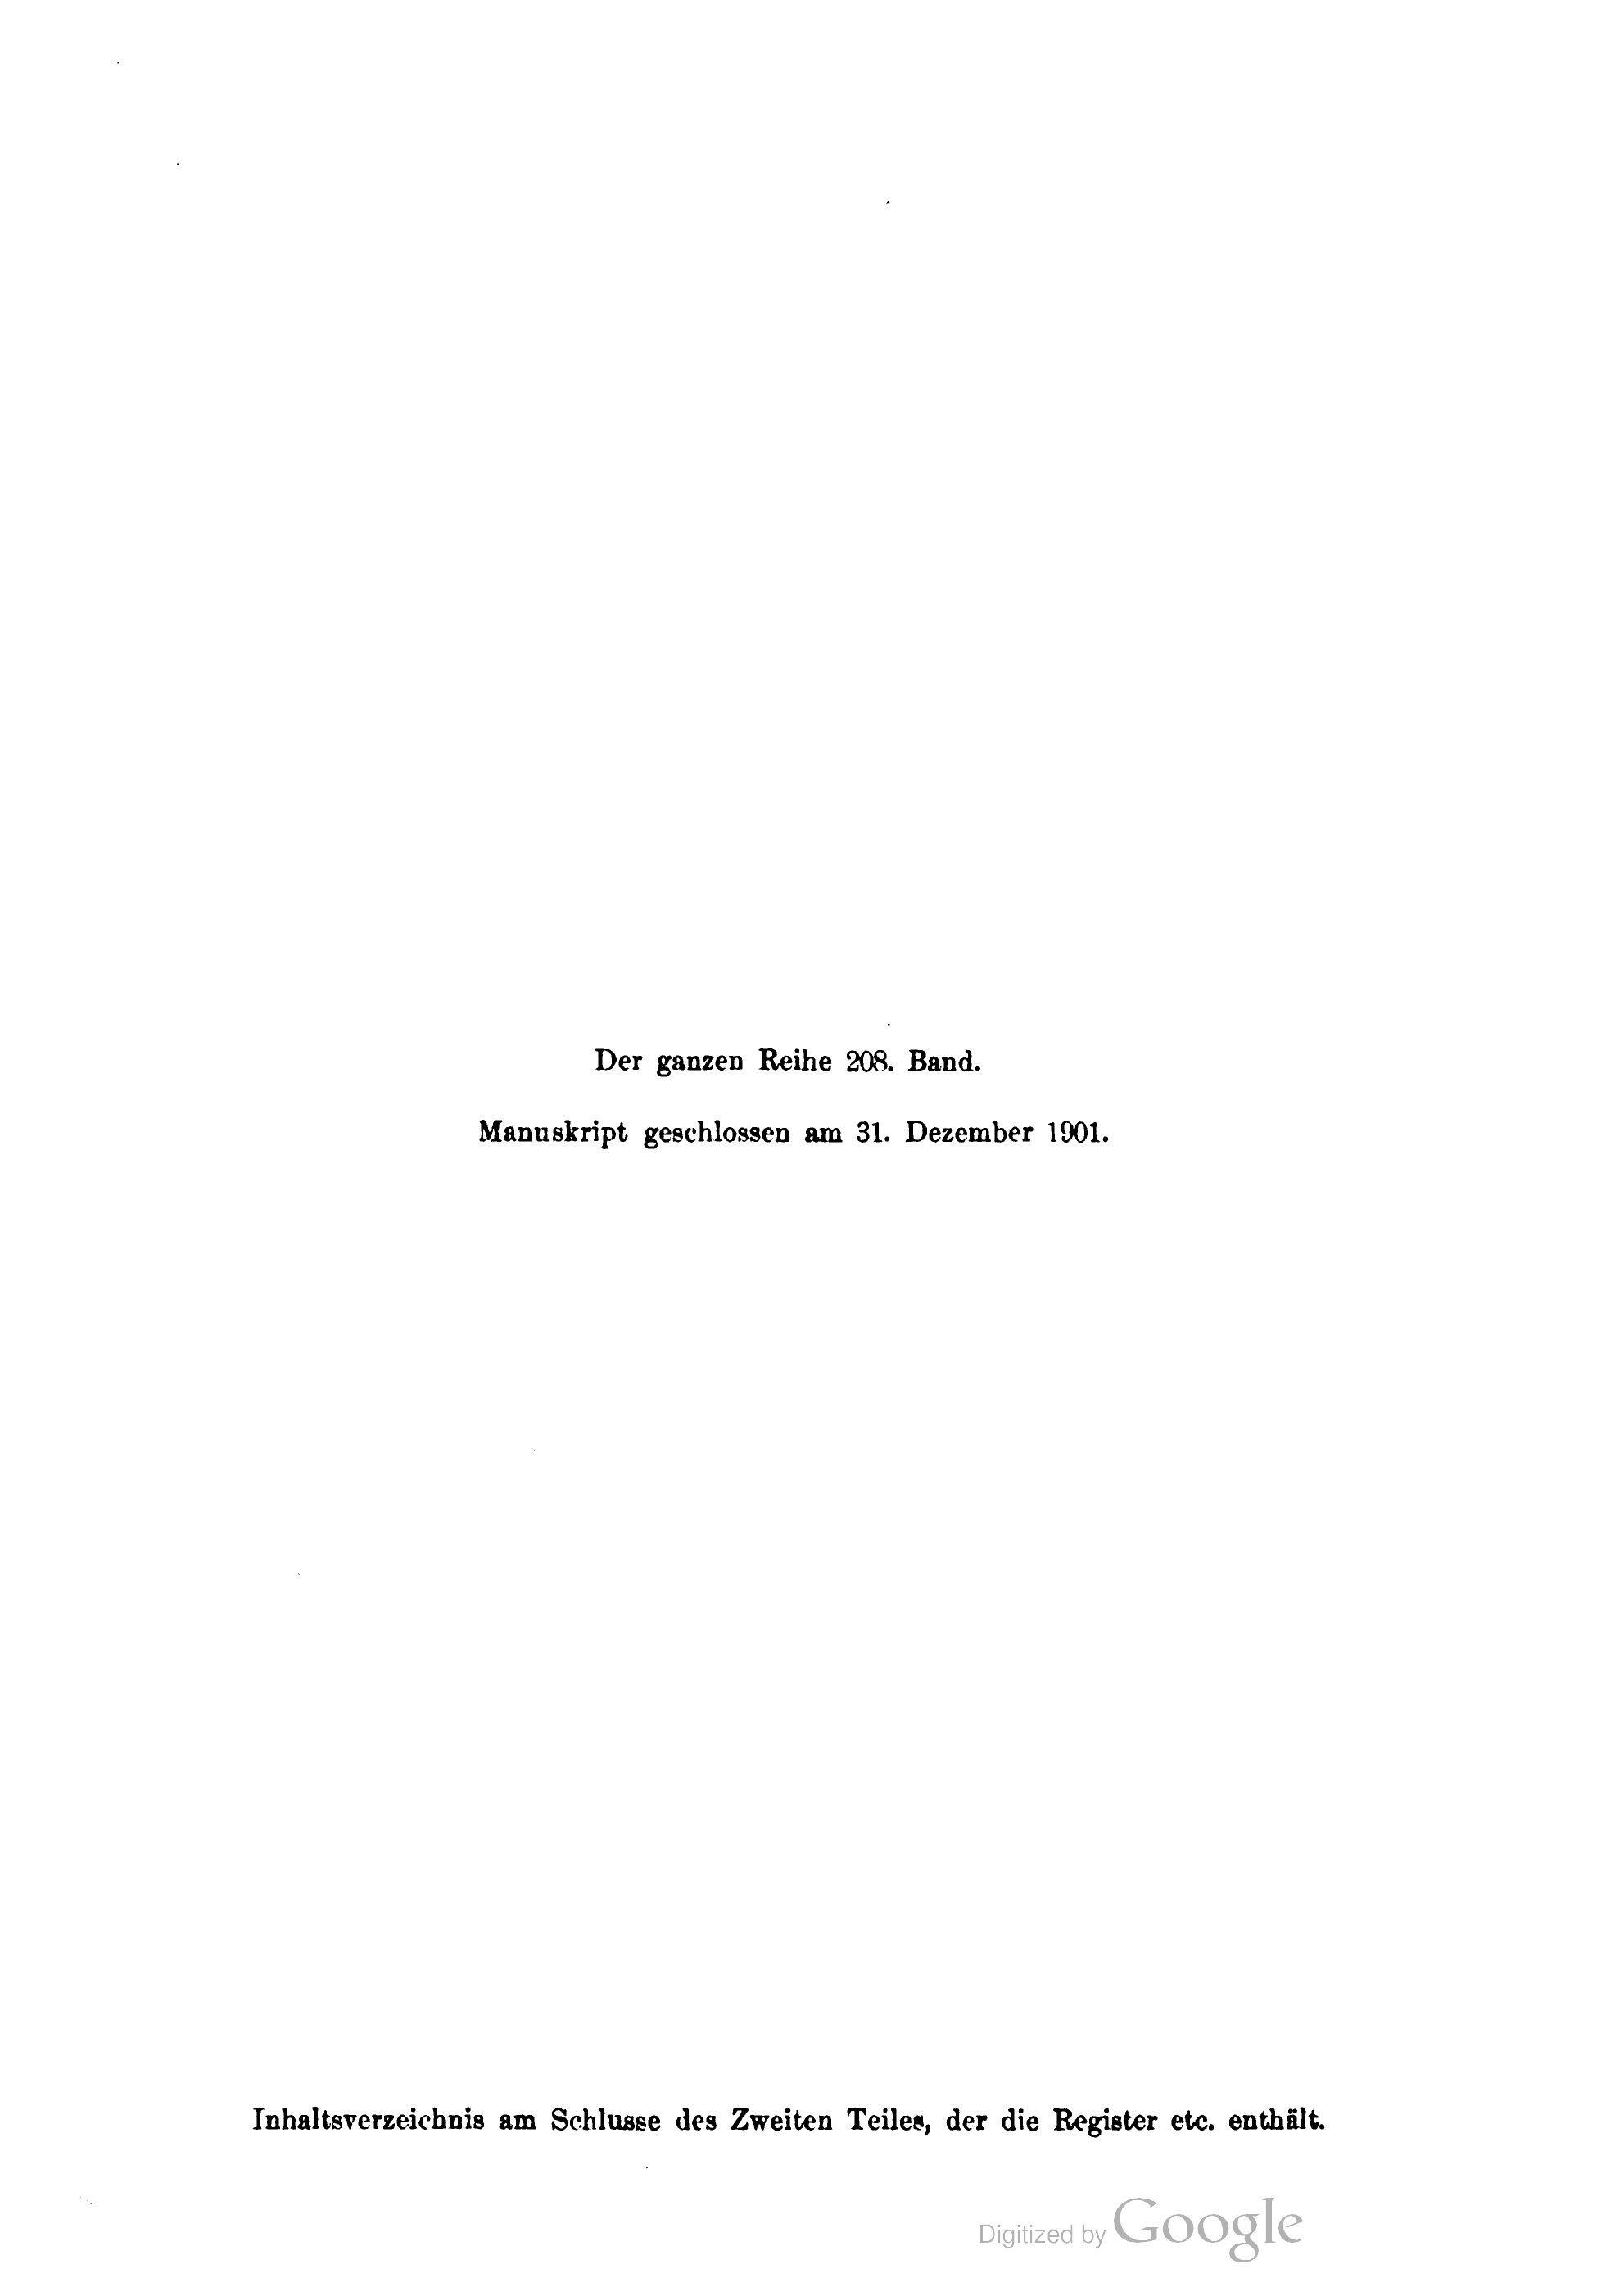 Der ganzen Reihe 208. Band.
Manuskript geschlossen am 31. Dezember 1901.
Inhaltsverzeichnis am Schlusse des Zweiten Teiles, der die Register etc. enthält.
Digitized by Google